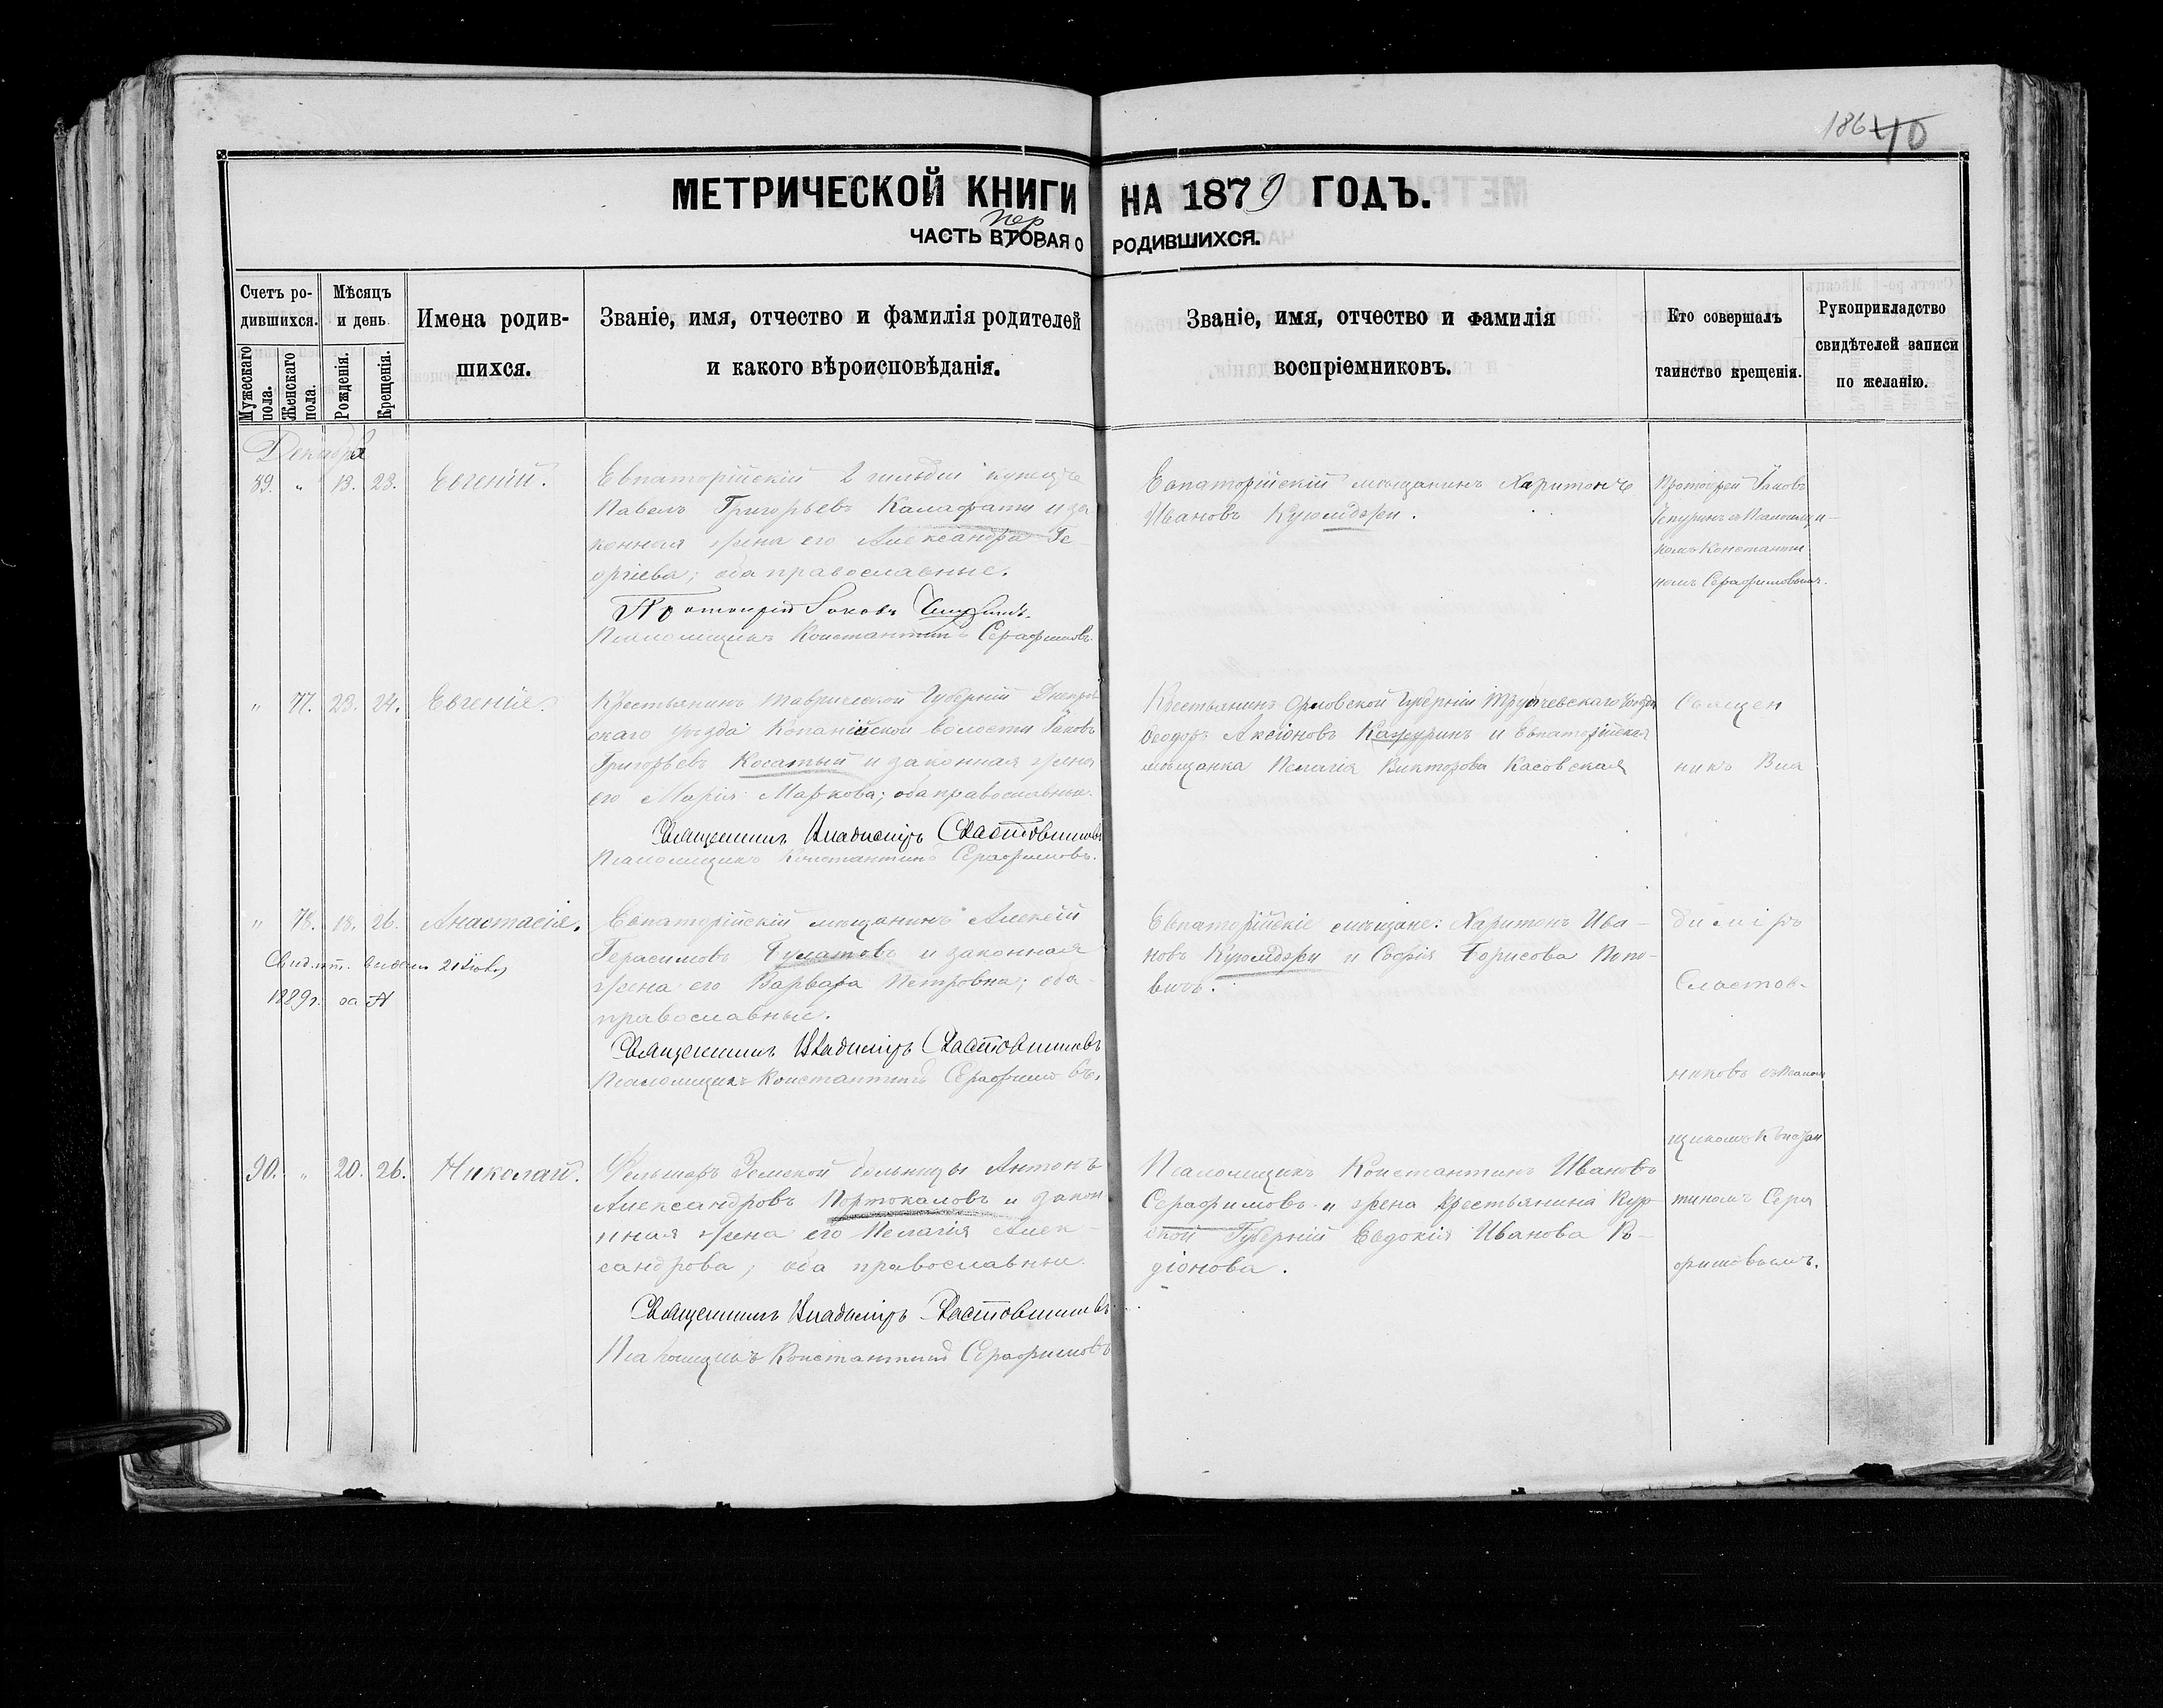 186 40
МЕТРИЧЕСКОЙ КНИГИ НА 1879 ГОДЪ.
пер
ЧАСТЬ ВТОРАЯ О РОДИВШИХСЯ.
Счетъ ро-
дившихся.
Мужескаго
пола.
Женскаго
пола.
Мѣсяцъ
и день
Рожденія.
Крещенія.
Имена родив-
шихся.
Званіе, имя, отчество и фамилія родителей
и какого вѣроисповѣданія.
Званіе, имя, отчество и фамилія
воспріемниковъ.
Кто совершалъ
таинство крещенія.
Рукоприкладство
свидѣтелей записи
по желанію.
Декабря
89. " 13. 23. Евгеній.
Евпаторійскій 2 гильдіи купецъ
Павелъ Григорьевъ Каламфати и за
конная жена его Александра Ге-
оргіева; оба православные.
Протоіерей Іаковъ Чепуринъ.
Псаломщикъ Константинъ Серафимовъ.
Евпаторійскій мѣщанинъ Харитонъ
Ивановъ Куюмджи.
Протоіерей Іаковъ
Чепуринъ съ Псаломщи-
комъ Константи
номъ Серафимовымъ.
" 77. 23. 24. Евгенія.
Крестьянинъ Таврической Губерніи Днепров
скаго уѣзда Копанійской волости Іаковъ
Григорьевъ Косатый и законная жена
его Марія Маркова; оба православные.
Священникъ Владиміръ Сластовниковъ
Псаломщикъ Константинъ Серафимовъ.
Крестьянинъ Орловской Губерніи Трубчевскаго Уѣзда
Ѳеодоръ Аксіоновъ и Евпаторійская
мѣщанка Пелагія Викторова Касовская
" 78. 18. 26. Анастасія.
Свидѣт. выдано 21
1889 г. за №
Евпаторійскій мѣщанинъ Алексій
Герасимовъ Булатовъ и законная
жена его Варвара Петровна; оба
православные.
Священникъ Владиміръ Сластовниковъ
Псаломщикъ Константинъ Серафимовъ.
Евпаторійскіе мѣщане: Харитонъ Ива-
новъ Куюмджи и Софія Борисова Попо-
вичъ.
90. " 20. 26. Николай.
Фельшеръ Земской больницы Антонъ
Александровъ Портокаловъ и закон
нная жена его Пелагія Алек-
сандрова; оба православные.
Священникъ Владиміръ Сластовниковъ
Псаломщикъ Константинъ Серафимовъ
Псаломщикъ Константинъ Ивановъ
Серафимовъ и жена крестьянина Кур-
ской Губерніи Евдокія Иванова Ро-
діонова.
Священ
никъ Вла
диміръ
Сластов-
никовъ съ Псалом
щикомъ Констан
тиномъ Сера
фимовымъ.